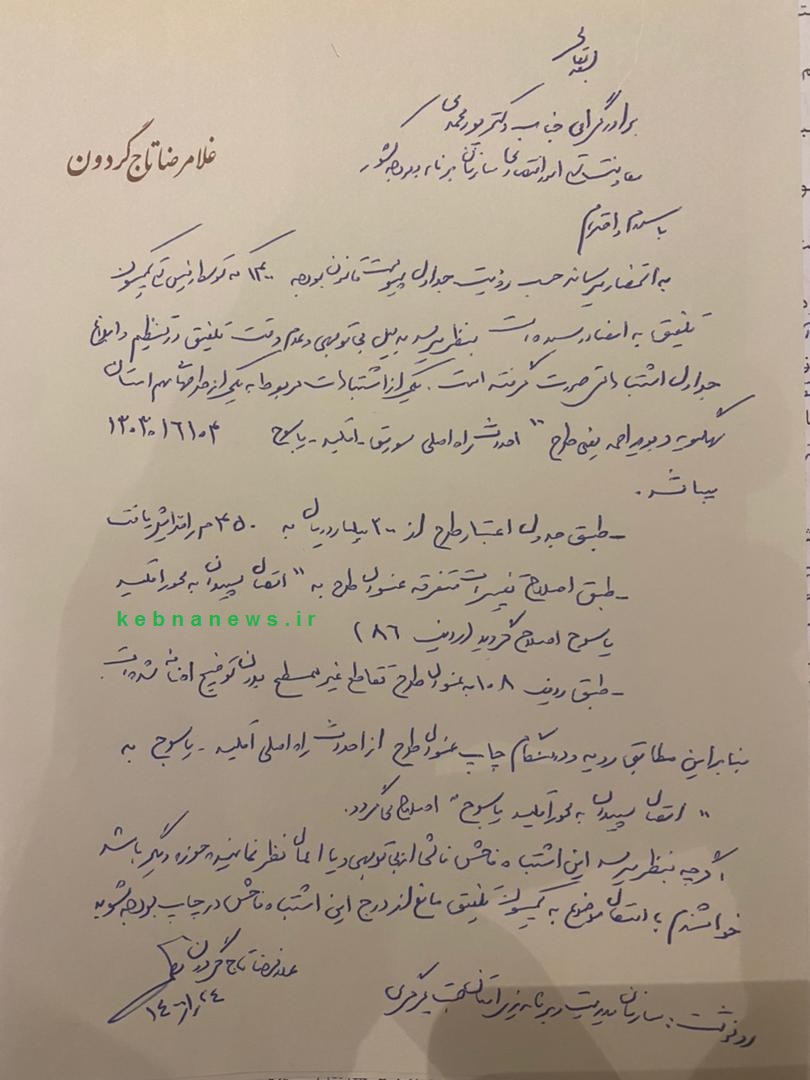 بسمه تعالی
غلامرضا تاج گردون
برادر گرامی جناب دکتر پورمحمدی
معاونت امور اقتصادی سازمان برنامه و بودجه کشور
با سلام و احترام
به استحضار میرساند حسب رؤیت جداول پیوست قانون بودجه ۱۴۰۰ که توسط رئیس کمیسیون
تلفیق به امضاء رسیده است بنظر میرسد به دلیل بی توجهی و عدم دقت تلفیق در تنظیم و ابلاغ
جداول اشتباهاتی صورت گرفته است. یکی از اشتباهات مربوط به یکی از طرحهای مهم استان
کهگیلویه و بویراحمد یعنی طرح " احداث راه اصلی سورمق - اقلید - یاسوج ۱۳۰۳۰۱۶۱۰۴
میباشد.
- طبق جدول اعتبار طرح از ۲۰۰ میلیارد ریال به ۴۵۰ م ر افزایش یافت
- طبق اصلاح تغییرات متفرقه عنوان طرح به " اتصال سپیدان به محور اقلید
kebnanews.ir
یاسوج اصلاح گردید (ردیف ۸۶)
- طبق ردیف ۱۰۸ به عنوان طرح تقاطع غیر همسطح بدون توضیح اضافه شده است
بنابراین مطابق رویه و در هنگام چاپ عنوان طرح از احداث راه اصلی اقلید - یاسوج به
" اتصال سپیدان به محور اقلید یاسوج " اصلاح می گردد.
اگرچه بنظر میرسد این اشتباه فاحش ناشی از بی توجهی و یا اعمال نظر نماینده حوزه دیگر باشد
خواهشمندم با انتقال موضوع به کمیسیون تلفیق مانع از درج این اشتباه فاحش در چاپ بودجه شوید
غلامرضا تاج گردون
۱۴۰۰/۱/۲۴
رونوشت: سازمان مدیریت و برنامه ریزی استان جهت پیگیری